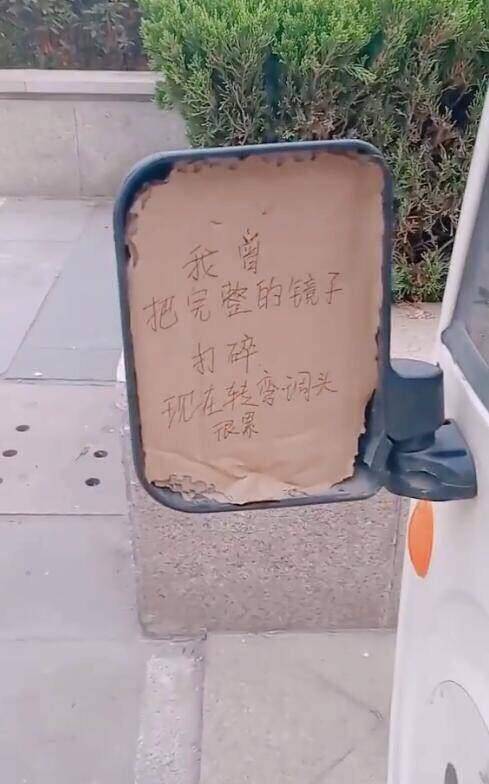 我曾
把完整的镜子
打碎
现在转弯调头
很累